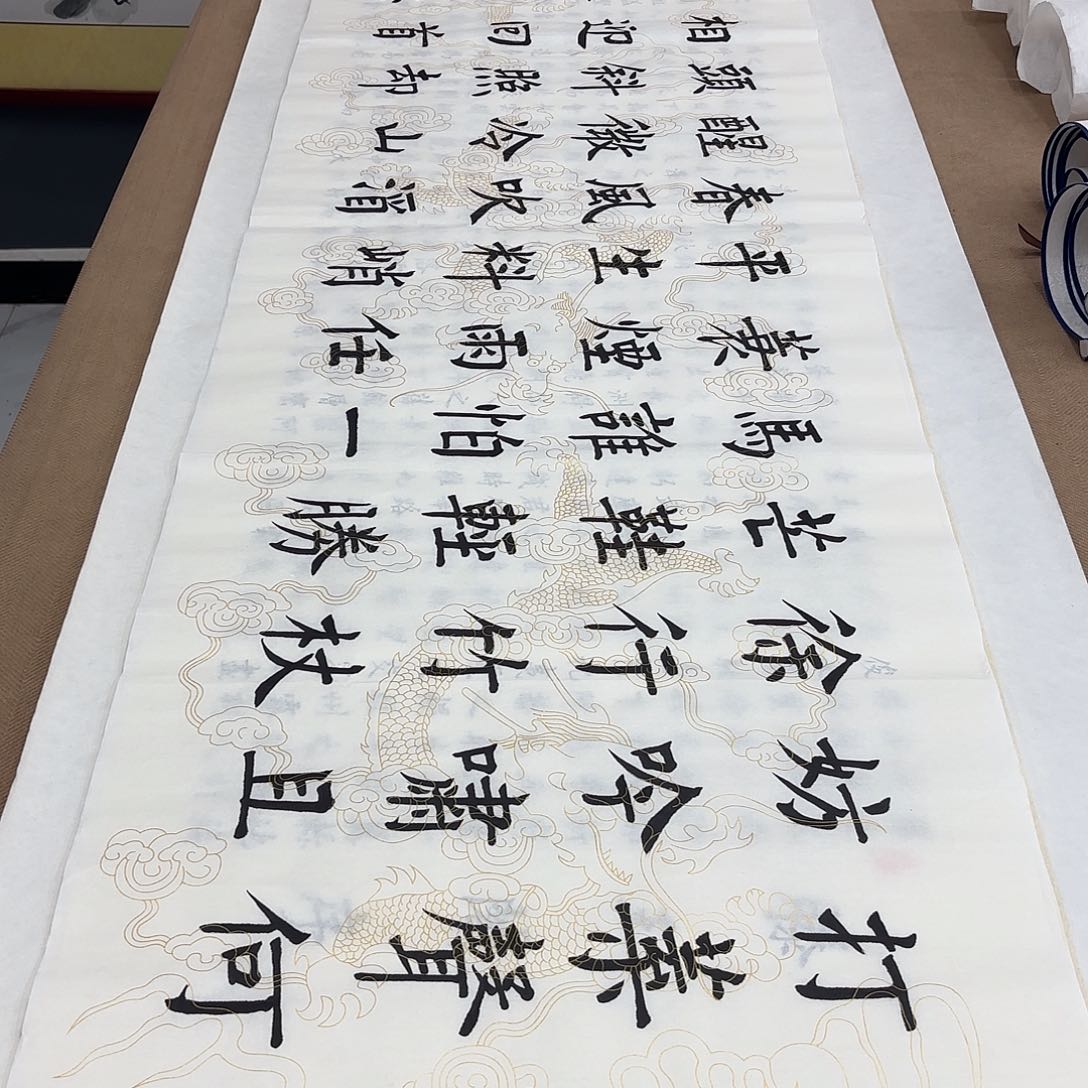 打葉聲何
妨吟嘯且
徐行竹杖
芒鞋輕勝
馬誰怕一
蓑煙雨任
平生料峭
春風吹酒
醒微冷山
頭斜照却
相迎回首